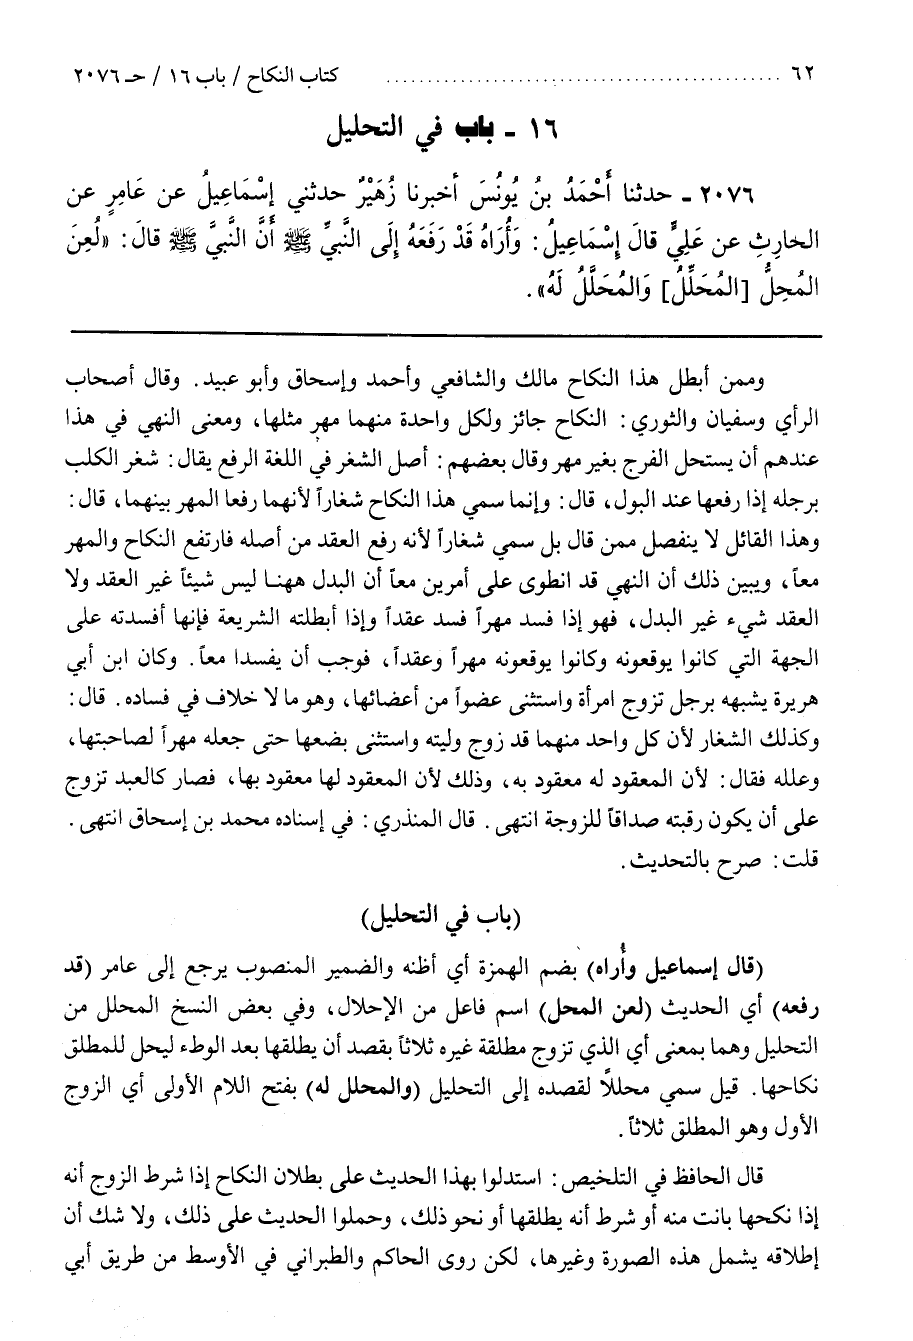 ٦٢ كتاب النكاح / باب ١٦ / حـ ٢٠٧٦
١٦ - باب في التحليل
٢٠٧٦ - حدثنا أَحْمَدُ بنُ يُونُسَ أخبرنا زُهَيْرٌ حدثني إسْمَاعِيلُ عن عَامِرٍ عن
الحارِثِ عن عَلِيٍّ قالَ إسْمَاعِيلُ: وَأُرَاهُ قَدْ رَفَعَهُ إلَى النَّبيِّ ﷺ أنَّ النَّبيَّ ﷺ قالَ: «لُعِنَ
المُحِلُّ [المُحَلِّلُ] وَالمُحَلَّلُ لَهُ».
وممن أبطل هذا النكاح مالك والشافعي وأحمد وإسحاق وأبو عبيد. وقال أصحاب
الرأي وسفيان والثوري: النكاح جائز ولكل واحدة منهما مهر مثلها، ومعنى النهي في هذا
عندهم أن يستحل الفرج بغير مهر وقال بعضهم: أصل الشغر في اللغة الرفع يقال: شغر الكلب
برجله إذا رفعها عند البول، قال: وإنما سمي هذا النكاح شغاراً لأنهما رفعا المهر بينهما، قال:
وهذا القائل لا ينفصل ممن قال بل سمي شغاراً لأنه رفع العقد من أصله فارتفع النكاح والمهر
معاً، ويبين ذلك أن النهي قد انطوى على أمرين معاً أن البدل ههنا ليس شيئاً غير العقد ولا
العقد شيء غير البدل، فهو إذا فسد مهراً فسد عقداً وإذا أبطلته الشريعة فإنها أفسدته على
الجهة التي كانوا يوقعونه وكانوا يوقعونه مهراً وعقداً، فوجب أن يفسدا معاً. وكان ابن أبي
هريرة يشبهه برجل تزوج امرأة واستثنى عضواً من أعضائها، وهو ما لا خلاف في فساده. قال:
وكذلك الشغار لأن كل واحد منهما قد زوج وليته واستثنى بضعها حتى جعله مهراً لصاحبتها،
وعلله فقال: لأن المعقود له معقود به، وذلك لأن المعقود لها معقود بها، فصار كالعبد تزوج
على أن يكون رقبته صداقاً للزوجة انتهى. قال المنذري: في إسناده محمد بن إسحاق انتهى.
قلت: صرح بالتحديث.
(باب في التحليل)
(قال إسماعيل وأُراه) بضم الهمزة أي أظنه والضمير المنصوب يرجع إلى عامر (قد
رفعه) أي الحديث (لعن المحل) اسم فاعل من الإحلال، وفي بعض النسخ المحلل من
التحليل وهما بمعنى أي الذي تزوج مطلقة غيره ثلاثاً بقصد أن يطلقها بعد الوطء ليحل للمطلق
نكاحها. قيل سمي محللاً لقصده إلى التحليل (والمحلل له) بفتح اللام الأولى أي الزوج
الأول وهو المطلق ثلاثاً.
قال الحافظ في التلخيص: استدلوا بهذا الحديث على بطلان النكاح إذا شرط الزوج أنه
إذا نكحها بانت منه أو شرط أنه يطلقها أو نحو ذلك، وحملوا الحديث على ذلك، ولا شك أن
إطلاقه يشمل هذه الصورة وغيرها، لكن روى الحاكم والطبراني في الأوسط من طريق أبي